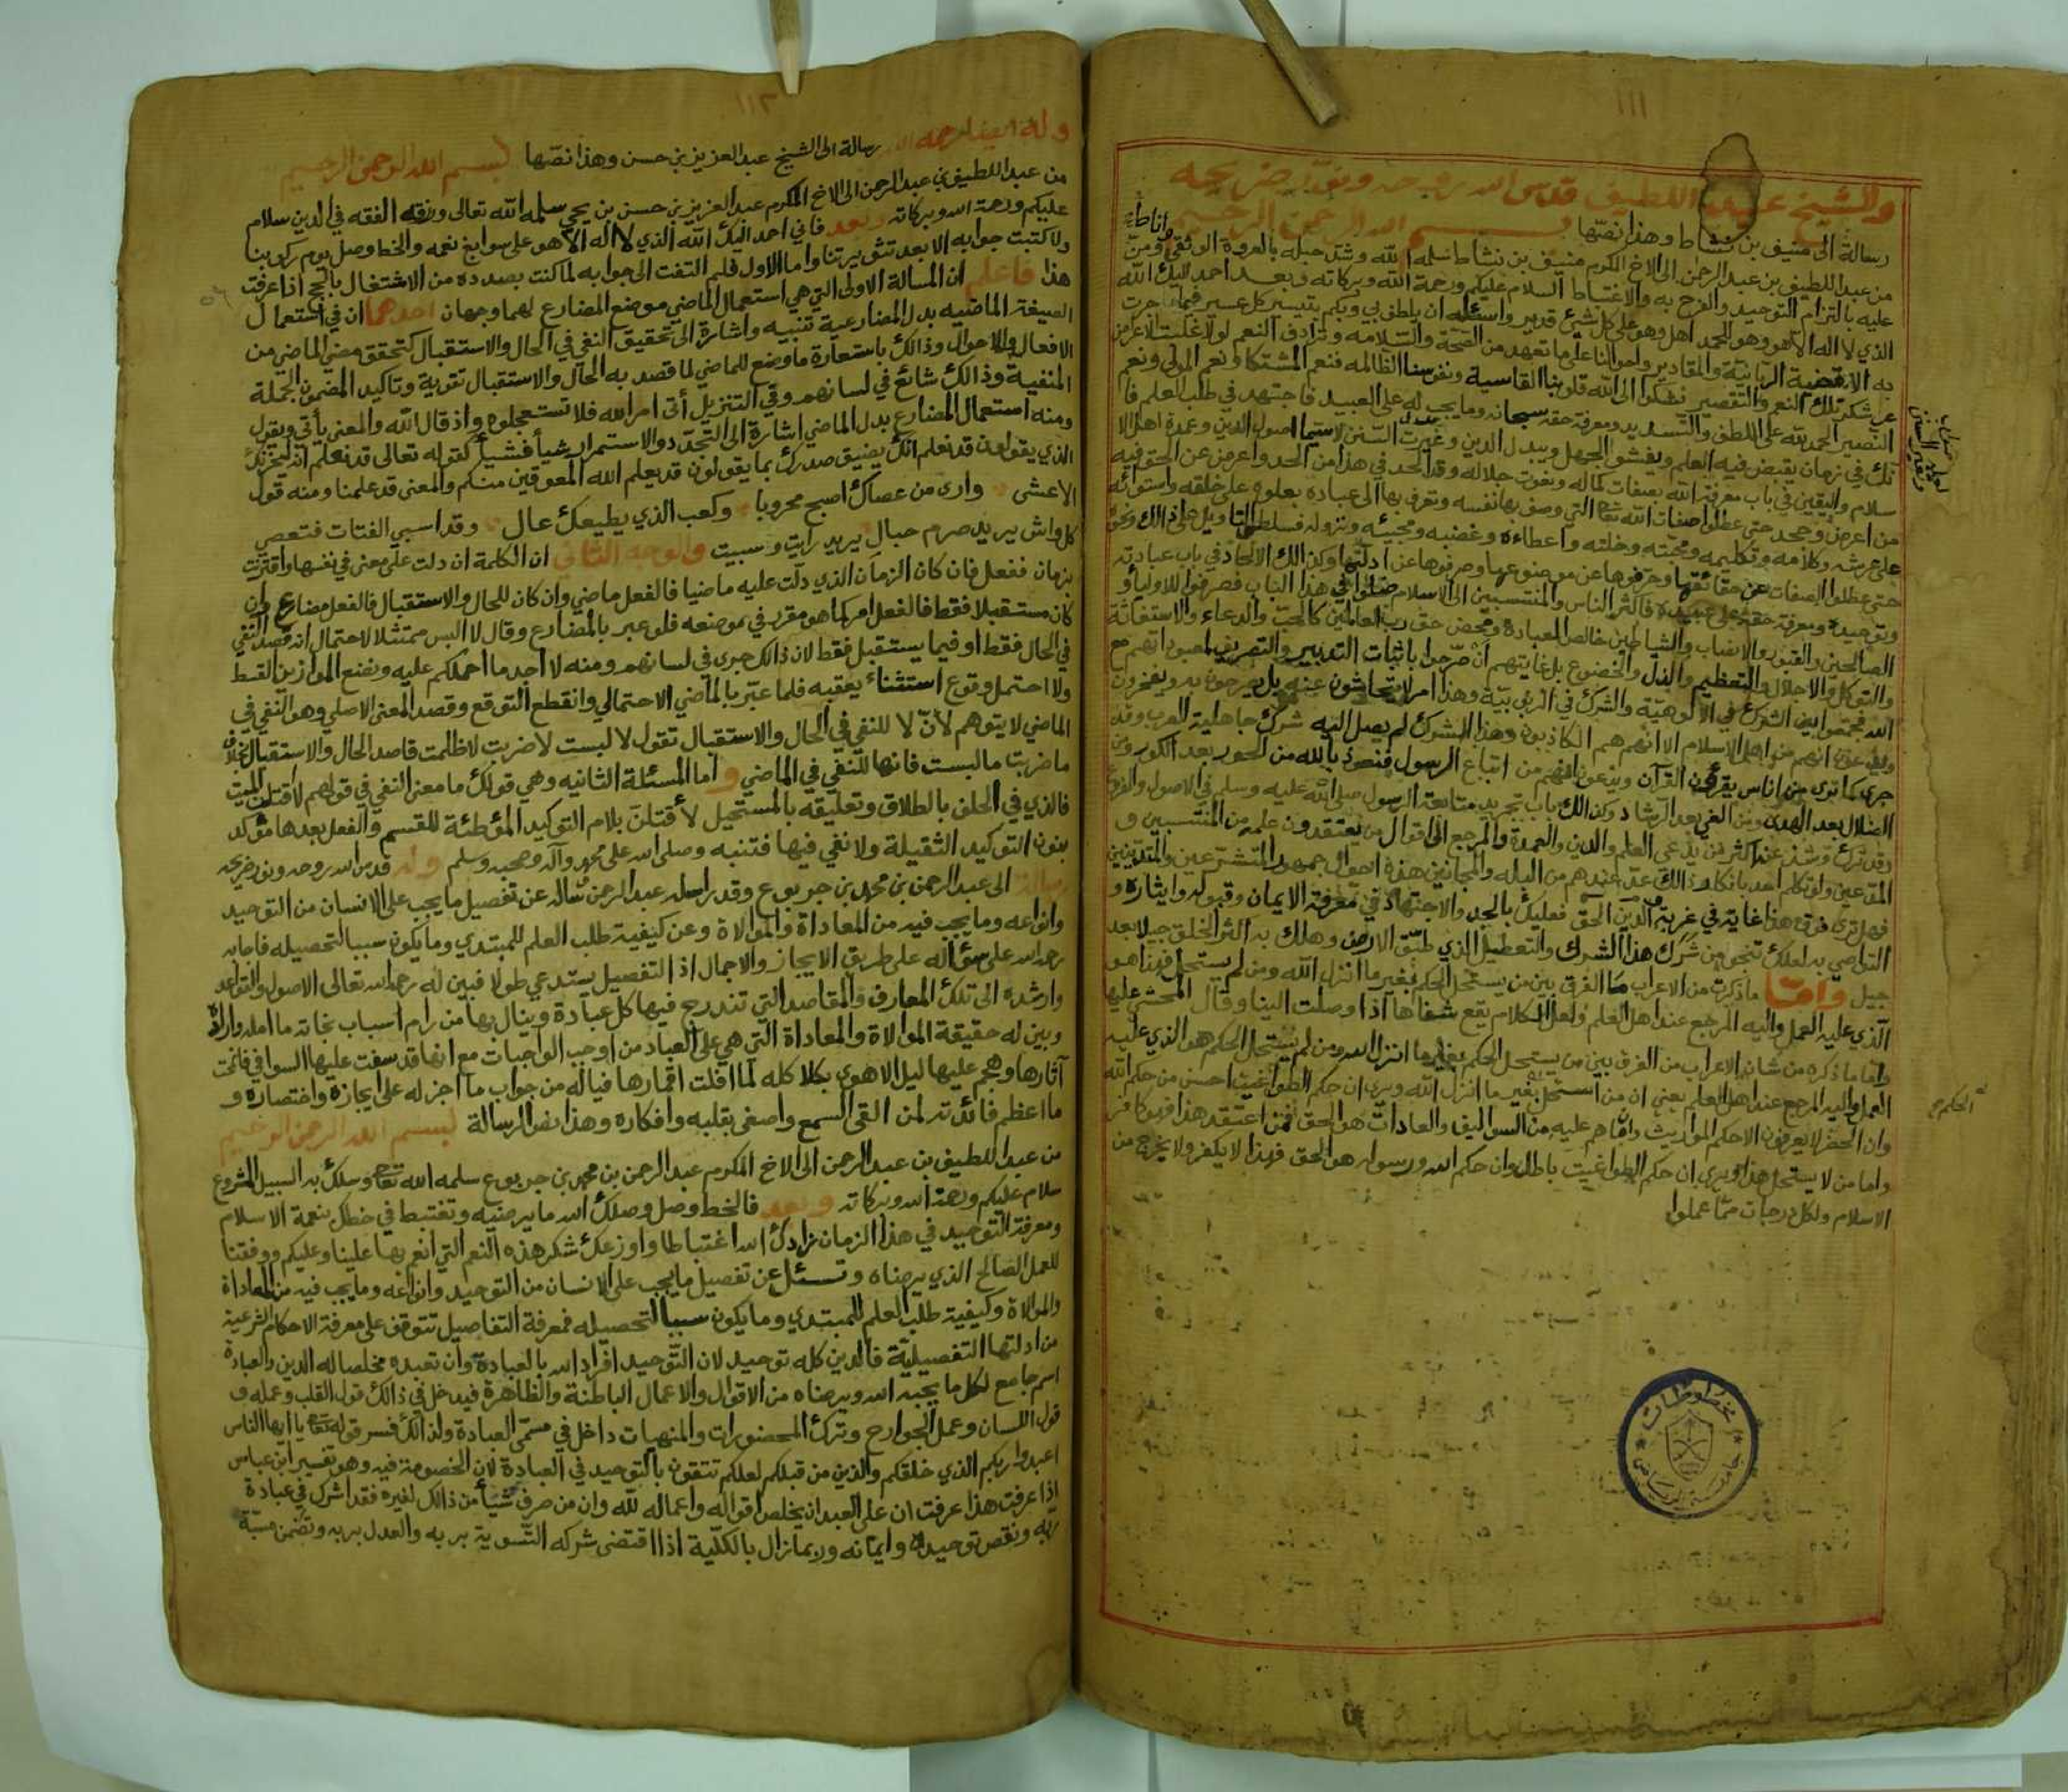 ١١١
وللشيخ عبد اللطيف قدس الله روحه ونور ضريحه
رسالة الى منيف بن نشاط وهذا نصها بسم الله الرحمن الرحيم
من عبد اللطيف بن عبد الرحمن الى الاخ المكرم منيف بن نشاط سلمه الله وشد حبله بالعروة الوثقى ومن
عليه بالتزام التوحيد والفرح به والاغتباط السلام عليكم ورحمة الله وبركاته وبعد احمد اليك الله
الذي لا اله الا هو وهو للحمد اهل وهو على كل شيئ قدير واسئله ان يلطف بي وبكم بتيسير كل عسير فيما جرت
به الاقضية الربانية والمقادير واحوالنا على ما تعهد من الصحة والسلامه وترادف النعم لولا غلبت الاعراض
عن شكر تلك النعم والتقصير نشكوا الى الله قلوبنا القاسية ونفوسنا الظالمه فنعم المشتكا ونعم المولى ونعم
النصير الحمد لله على اللطف والتسديد ومعرفة حقه سبحانه وما يجب له على العبيد فاجتهد في طلب العلم فا
نك في زمان يقبض فيه العلم ويفشو الجهل ويبدل الدين وغيرت السنن لاسيما اصول الدين وعمدة اهل الا
سلام واليقين في باب معرفة الله بصفات كماله ونعوت جلاله وقد الحد في هذا من الحد واعرض عن الحق فيه
من اعرض وجحد حتى عطلوا صفات الله تعالى التي وصف بها نفسه وتعرف بها الى عباده بعلوه على خلقه واستوائه
على عرشه وكلامه وتكليمه ومحبته وخلته واعطاءه وغضبه ومجيئه ونزوله فسلطوا التأويل على ذالك ونحوه
حتى عطلوا الصفات عن حقائقها وحرفوها عن موضوعها وصرفوها عن ادلتها وكذالك الالحاد في باب عبادته
وتوحيده ومعرفة حقه على عبيده فاكثر الناس والمنتسبين الى الاسلام ضلوا في هذا الباب فصرفوا للاوليا و
الصالحين والقبور والانصاب والشياطين خالص العبادة ومحض حق رب العالمين كالحب والدعاء والاستغاثة
والتوكل والاجلال والتعظيم والذل والخضوع بل غايتهم ان صرحوا باثبات التدبير والتصريف لمعبوداتهم مع
الله فجمعوا بين الشرك في الالوهية والشرك في الربوبية وهذا امر لا يتحاشون عنه بل يصرحون به ويفخرون
ويدعون انهم من اهل الاسلام الا انهم هم الكاذبون وهذا الشرك لم يصل اليه شرك جاهلية العرب وقد
جرى كما ترى من اناس يقرؤن القرآن ويدعون انهم من اتباع الرسول فنعوذ بالله من الحور بعد الكور ومن
الضلال بعد الهدى ومن الغي بعد الرشاد وكذالك باب تجريد متابعة الرسول صلى الله عليه وسلم في الاصول والفروع
وقد ترك وشذ عند اكثر من يدعي العلم والدين والعمدة والمرجع الى اقوال من يعتقدون علمه من المنتسبين و
المدعين ولو تكلم احد بانكار ذالك عد عندهم من البله والمجانين هذه احوال جمهور المتشرعين والمتدينين
فهل ترى فوق هذا غاية في غربة الدين الحق فعليك بالجد والاجتهاد في معرفة الايمان وقبوله وايثاره و
التواصي به لعلك تنجو من شرك هذا الشرك والتعطيل الذي طبق الارض وهلك به اكثر الخلق جيلا بعد
جيل واما ما ذكرت من الاعراب ما الفرق بين من يستحل الحكم بغير ما انزل الله ومن لم يستحل فهذا هو
الذي عليه العمل واليه المرجع عند اهل العلم ولعل الكلام يقع شفاها اذا وصلت الينا وقال المحشي عليها
واما ما ذكره من شان الاعراب من الفرق بين من يستحل الحكم بغير ما انزل الله ومن لم يستحل الحكم هو الذي عليه
العمل واليه المرجع عند اهل العلم يعني ان من استحل بغير ما انزل الله ويرى ان حكم الطواغيت احسن من حكم الله
وان الحضر لا يعرفون الا حكم المواريث وان ما هم عليه من السواليف والعادات هو الحق فمن اعتقد هذا فهو كافر
واما من لا يستحل هذا ويرى ان حكم الطواغيت باطل وان حكم الله ورسوله هو الحق فهذا لا يكفر ولا يخرج من
الاسلام ولكل درجات مما عملوا
مخطوطات
جامعة الرياض
١١٢
وله ايضا رحمه الله رسالة الى الشيخ عبد العزيز بن حسن وهذا نصها بسم الله الرحمن الرحيم
من عبد اللطيف بن عبد الرحمن الى الاخ المكرم عبد العزيز بن حسن بن يحي سلمه الله تعالى ورزقه الفقه في الدين سلام
عليكم ورحمة الله وبركاته وبعد فاني احمد اليك الله الذي لا اله الا هو على سوابغ نعمه والخط وصل يوم ركوبنا
ولا كتبت جوابه الا بعد واما الاول فلم التفت الى جوابه لما كنت بصدده من الاشتغال بالحج اذا عرفت
هذا فاعلم ان المسالة الاولى التي هي استعمال الماضي موضع المضارع لهما وجهان احدهما ان في استعمال
الصيغة الماضيه بدل المضارعية تنبيه واشارة الى تحقيق النفي في الحال والاستقبال كتحقق مضي الماضي من
الافعال والاحوال وذالك باستعارة ما وضع للماضي لما قصد به الحال والاستقبال تقوية وتاكيد المضمون الجملة
المنفية وذالك شائع في لسانهم وفي التنزيل أتى امر الله فلا تستعجلوه واذ قال الله والمعنى يأتي ويقول
ومنه استعمال المضارع بدل الماضي اشارة الى التجدد والاستمرار شيأ فشيأ كقوله تعالى قد نعلم انه ليحزنك
الذي يقولون قد نعلم انك يضيق صدرك بما يقولون قد يعلم الله المعوقين منكم والمعنى قد علمنا ومنه قول
الاعشى وارى من عصاك اصبح محروبا وكعب الذي يطيعك عال وقد اسبي الفتات فتعصي
كل واش يريد صرم حبال يريد رأيت وسبيت والوجه الثاني ان الكلمة ان دلت على معنى في نفسها واقترنت
بزمان ففعل فان كان الزمان الذي دلت عليه ماضيا فالفعل ماضي وان كان للحال والاستقبال فالفعل مضارع وان
كان مستقبلا فقط فالفعل امر كما هو مقرر في موضعه فلو عبر بالمضارع وقال لا البس ممتثلا لاحتمال انه قصد النفي
في الحال فقط او فيما يستقبل فقط لان ذالك جرى في لسانهم ومنه لا اجد ما احملكم عليه ونضع الموازين القسط
ولا احتمل وقوع استثناء يعقبه فلما عبر بالماضي الاحتمالي وانقطع التوقع وقصد المعنى الاصلي وهو النفي في
الماضي لا يتوهم لأن لا للنفي في الحال والاستقبال تقول لا لبست لا ضربت لا ظلمت قاصد الحال والاستقبال بخلاف
ما ضربت ما لبست فانها للنفي في الماضي واما المسئلة الثانيه وهي قولك ما معنى النفي في قولهم لاقتلن الميت
فالذي في الحلف بالطلاق وتعليقه بالمستحيل لأقتلن بلام التوكيد المؤطئة للقسم والفعل بعدها مؤكد
بنون التوكيد الثقيلة ولا نفي فيها فتنبه وصلى الله على محمد وآله وصحبه وسلم وله قدس الله روحه ونور ضريحه
رسالة الى عبد الرحمن بن محمد بن جربوع وقد راسله عبد الرحمن يسأله عن تفصيل ما يجب على الانسان من التوحيد
وانواعه وما يجب فيه من المعاداة والموالاة وعن كيفية طلب العلم للمبتدي وما يكون سببا لتحصيله فاجابه
رحمه الله على سؤاله على طريق الايجاز والاجمال اذ التفصيل يستدعي طولا فبين له رحمه الله تعالى الاصول والقواعد
وارشده الى تلك المعارف والمقاصد التي تندرج فيها كل عبادة وينال بها من رام اسباب نجاته ما امله واراده
وبين له حقيقة الموالاة والمعاداة التي هي على العباد من اوجب الواجبات مع انها قد سفت عليها السوافي فانمحت
آثارها وهجم عليها ليل الاهوى بكلاكله لما افلت اقمارها فياله من جواب ما اجزله على ايجازه واختصاره و
ما اعظم فائدته لمن القى السمع واصغى بقلبه وافكاره وهذا نص الرسالة بسم الله الرحمن الرحيم
من عبد اللطيف بن عبد الرحمن الى الاخ المكرم عبد الرحمن بن محمد بن جربوع سلمه الله تعالى وسلك به السبيل المشروع
سلام عليكم ورحمة الله وبركاته وبعد فالخط وصل وصلك الله ما يرضيه وتغتبط في خطك بنعمة الاسلام
ومعرفة التوحيد في هذا الزمان زادك الله اغتباطا واوزعك شكر هذه النعم التي انعم بها علينا وعليكم ووفقنا
للعمل الصالح الذي يرضاه وتسئل عن تفصيل ما يجب على الانسان من التوحيد وانواعه وما يجب فيه من المعاداة
والموالاة وكيفية طلب العلم للمبتدي وما يكون سببا لتحصيله فمعرفة التفاصيل تتوقف على معرفة الاحكام الشرعية
من ادلتها التفصيلية فالدين كله توحيد لان التوحيد افراد الله بالعبادة وان تعبده مخلصا له الدين والعبادة
اسم جامع لكل ما يحبه الله ويرضاه من الاقوال والاعمال الباطنة والظاهرة فيدخل في ذالك قول القلب وعمله و
قول اللسان وعمل الجوارح وترك المحضورات والمنهيات داخل في مسمى العبادة ولذالك فسر قوله تعالى يا ايها الناس
اعبدوا ربكم الذي خلقكم والذين من قبلكم لعلكم تتقون بالتوحيد في العبادة لان الخصومة فيه وهو تفسير ابن عباس
اذا عرفت هذا عرفت ان على العبد ان يخلص اقواله واعماله لله وان من صرف شيأ من ذالك لغيره فقد اشرك في عبادة
ربه ونقص توحيده وايمانه وربما زال بالكلية اذا اقتضى شركه التسوية بربه والعدل بربه وتضمن مسبة